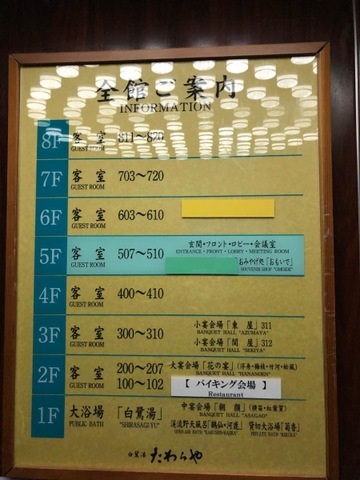 全館ご案内
INFORMATION
8F 客室 811〜820
GUEST ROOM
7F 客室 703〜720
GUEST ROOM
6F 客室 603〜610
GUEST ROOM
5F 客室 507〜510 玄関・フロント・ロビー・会議室
GUEST ROOM ENTRANCE・FRONT・LOBBY・MEETING ROOM
「おみやげ処「おもいで」
SOUVENIR SHOP "OMOIDE"
4F 客室 400〜410
GUEST ROOM
3F 客室 300〜310 小宴会場「東屋」311
GUEST ROOM BANQUET HALL "AZUMAYA"
小宴会場「関屋」312
BANQUET HALL "SEKIYA"
2F 客室 200〜207 大宴会場「花の宴」
GUEST ROOM 100〜102 BANQUET HALL "HANANOEN"
【 バイキング会場 】
Restaurant
1F 大浴場「白鷺湯」 中宴会場「朝顔」
PUBLIC BATH "SHIRASAGIYU" BANQUET HALL "ASAGAO"
渓流野天風呂 貸切大浴場「菊香」
白鷺湯 たわらや